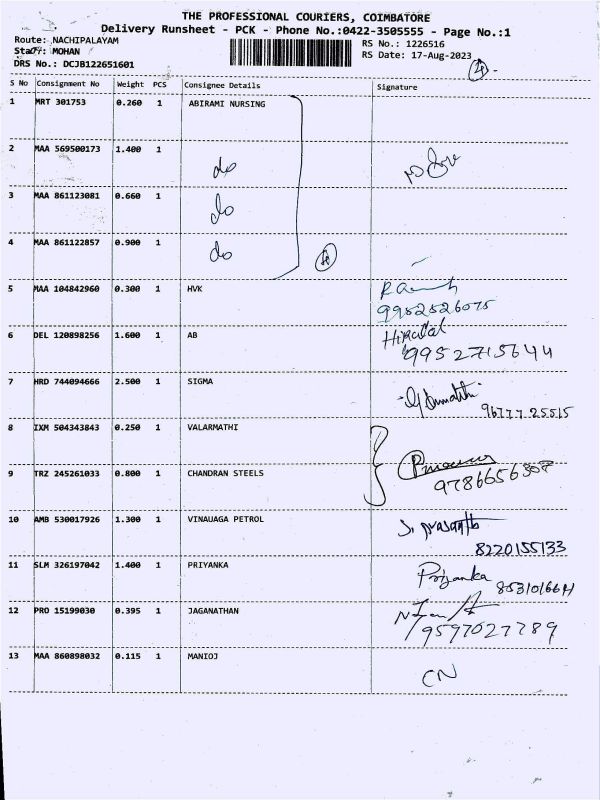 THE PROFESSIONAL COURIERS, COIMBATORE
Delivery Runsheet - PCK - Phone No.:0422-3505555 - Page No.:1
Route: NACHIPALAYAM
RS No.: 1226516
Staff: MOHAN
RS Date: 17-Aug-2023
DRS No.: DCJB122651601
4
S No Consignment No Weight PCS Consignee Details Signature
1 MRT 301753 0.260 1 ABIRAMI NURSING
2 MAA 569500173 1.400 1 do
3 MAA 861123081 0.660 1 do
4 MAA 861122857 0.900 1 do
4
5 MAA 104842960 0.300 1 HVK
9952526075
6 DEL 120898256 1.600 1 AB Hiralal
9952715644
7 HRD 744094666 2.500 1 SIGMA
96777 25515
8 IXM 504343843 0.250 1 VALARMATHI
9 TRZ 245261033 0.800 1 CHANDRAN STEELS
9786656307
10 AMB 530017926 1.300 1 VINAUAGA PETROL J. Prasanth
8220155133
11 SLM 326197042 1.400 1 PRIYANKA Priyanka
12 PRO 15199030 0.395 1 JAGANATHAN
9597027789
13 MAA 860898032 0.115 1 MANIOJ CN